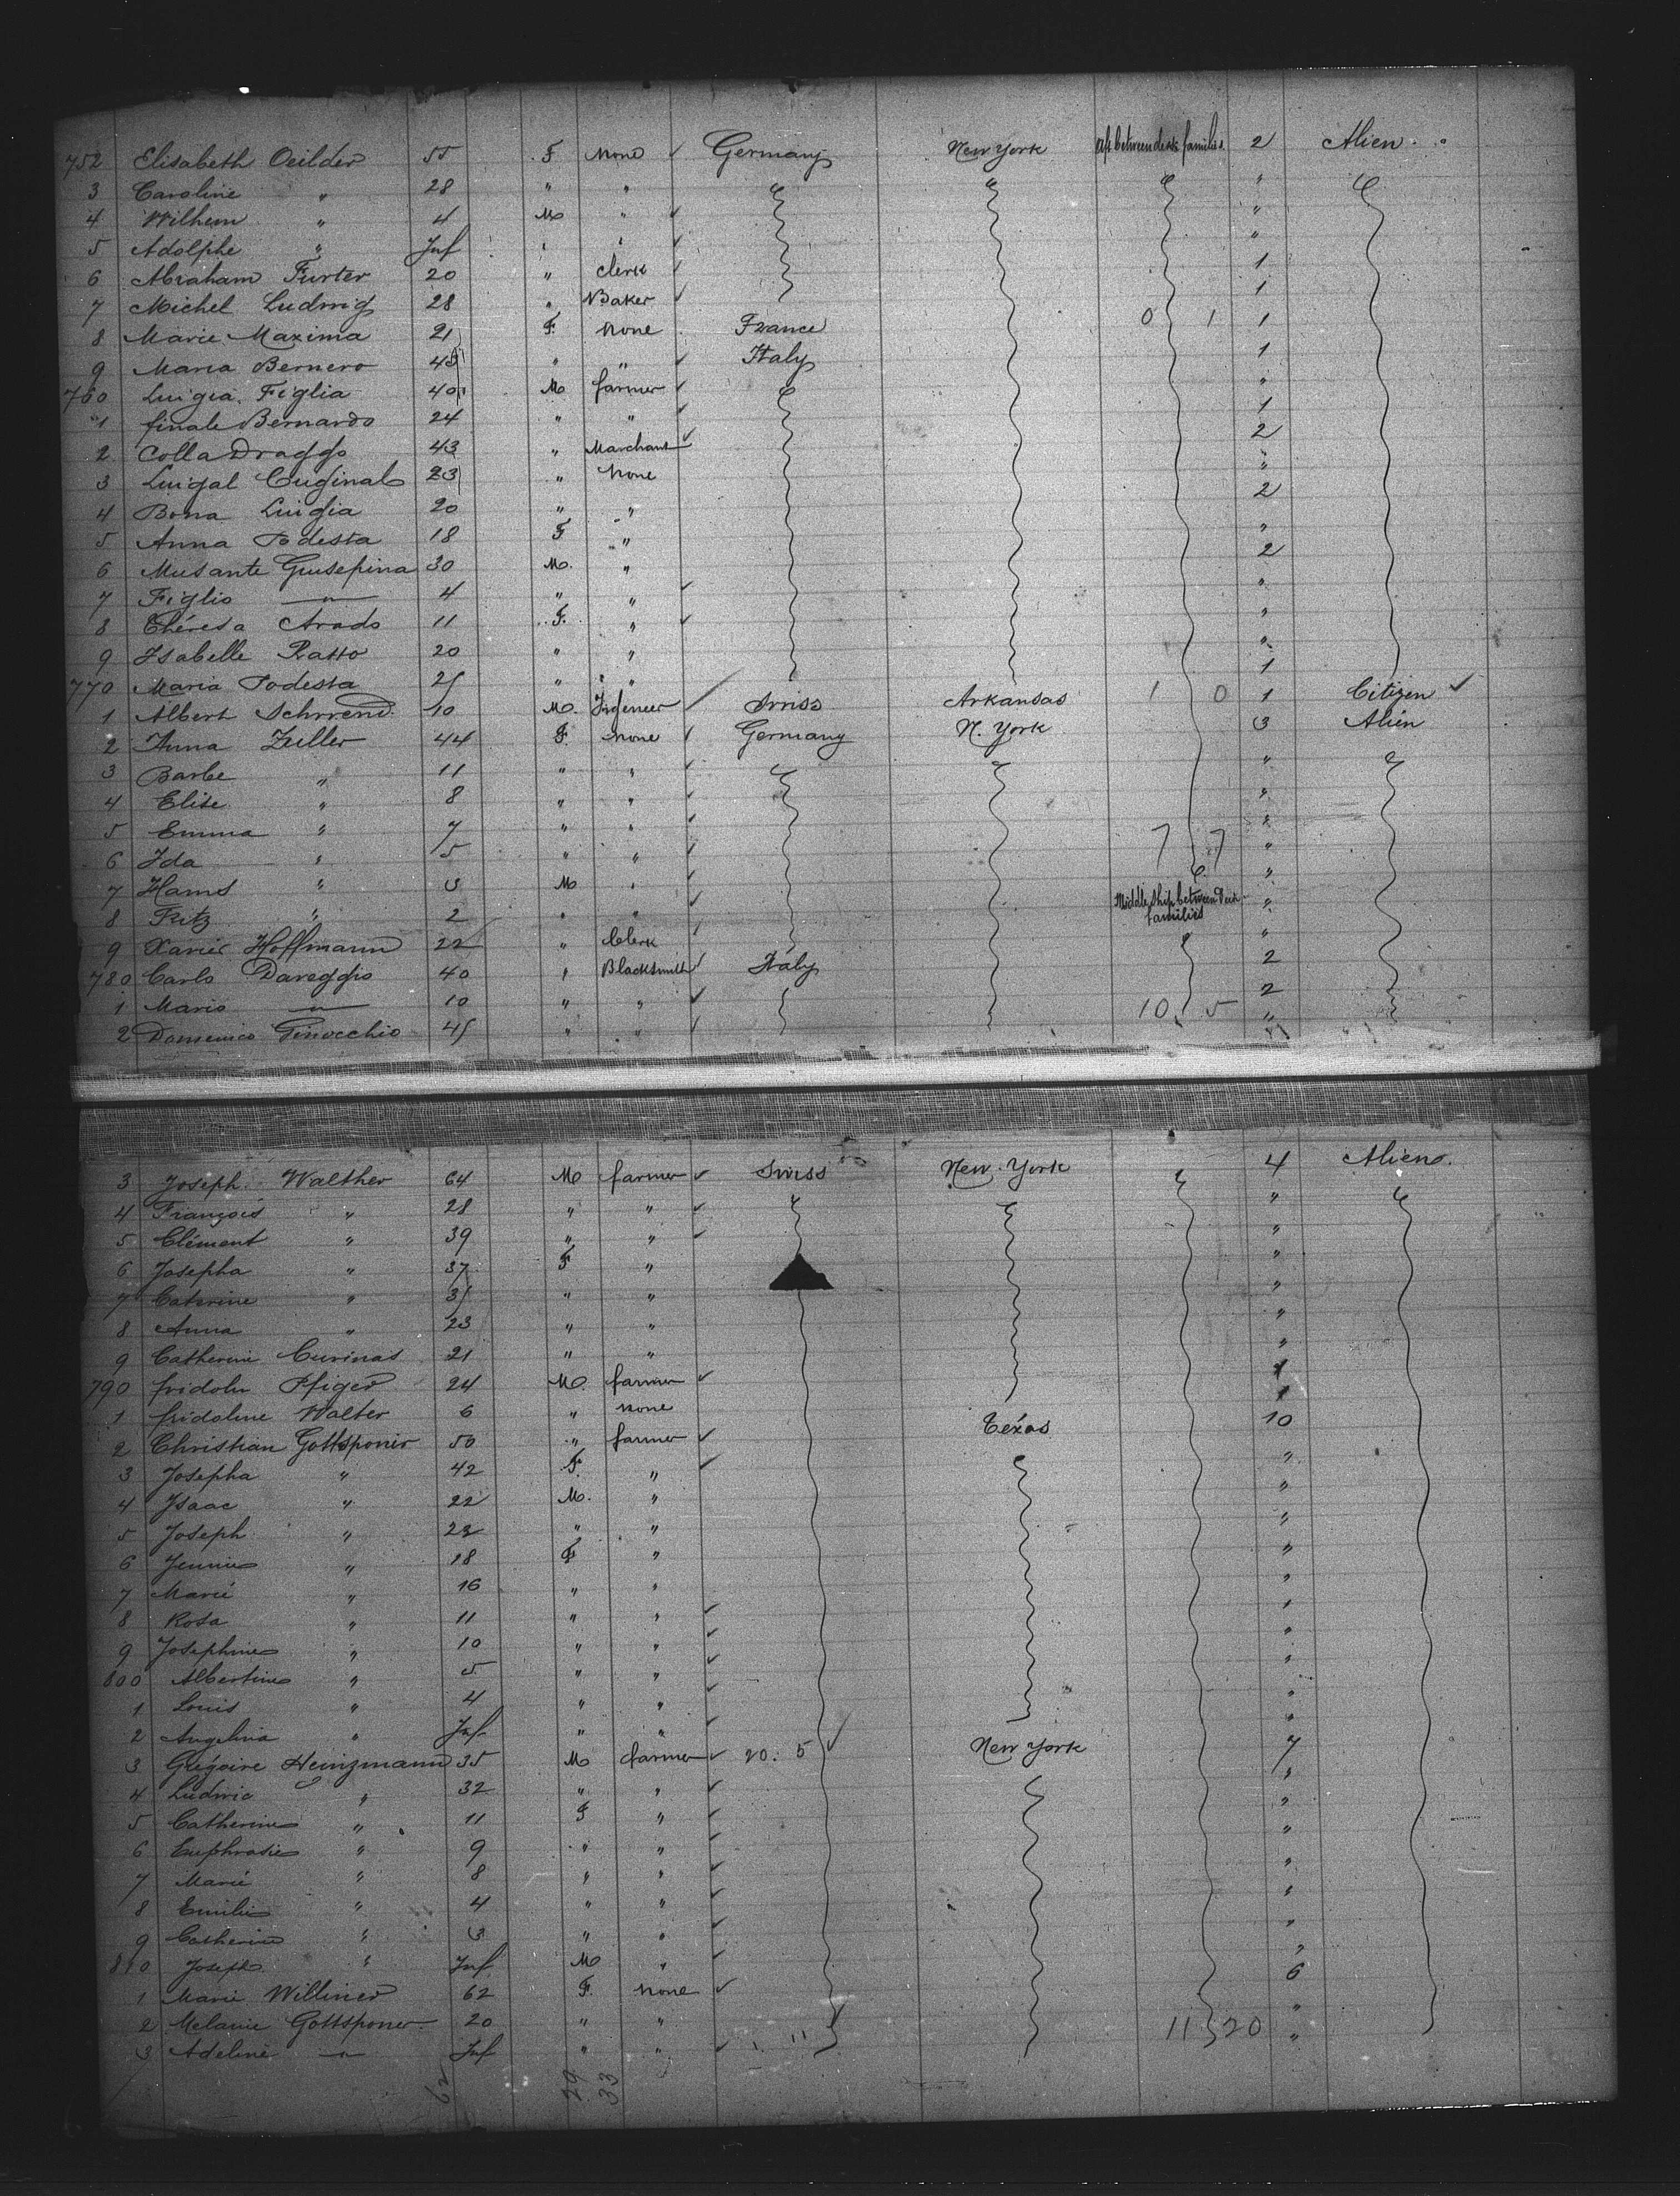 752 Elisabeth Oeilder 55 F None ✓ Germany New York aft between decks families 2 Alien
3 Caroline " 28 " " "
4 Wilhem " 4 M " ✓ "
5 Adolphe " Inf " " ✓ "
6 Abraham Furter 20 " clerk ✓ 1
7 Michel Ludwig 28 " Baker ✓ 1
8 Marie Maxima 21 F. none France 0 1 1
9 Maria Bernero 45 " " ✓ Italy 1
760 Luigia Figlia 40 M farmer ✓ "
1 finale Bernardo 24 " " ✓ 1
2 Colla Draggo 43 " Marchant ✓ 2
3 Luigal Cuginal 23 " None "
4 Bona Luigia 20 " " 2
5 Anna Podesta 18 F " "
6 Musante Giusepina 30 M. " 2
7 Figlio — " — 4 " " ✓ "
8 Théresa Arado 11 F. " ✓ "
9 Isabelle Ratto 20 " " "
770 Maria Podesta 25 " " 1
1 Albert Schwend 10 M. Ingeneer ✓ Swiss Arkansas 1 0 1 Citizen ✓
2 Anna Zuller 44 F. None ✓ Germany N. York 3 Alien
3 Barbe " 11 " " ✓ "
4 Elise " 8 " " ✓ "
5 Emma " 7 " " ✓ "
6 Ida " 5 " " ✓ 7 7 "
7 Hams " 3 M " ✓ "
8 Fritz " 2 " " ✓ Middle Ship between Deck families "
9 Xavier Hoffmann 22 " Clerk ✓ "
780 Carlo Dareggio 40 " Blacksmith ✓ Italy 2
1 Mario — " — 10 " " ✓ 10 5 2
2 Domenico Ginocchio 45 " " ✓ "
3 Joseph Walther 64 M farmer ✓ Swiss New York 4 Alien
4 François " 28 " " ✓ "
5 Clément " 39 " " ✓ "
6 Josepha " 37 F " "
7 Caterine " 35 " " "
8 Anna " 23 " " "
9 Catherine Curinas 21 " " "
790 fridolin Pfiger 24 M. farmer ✓ 1
1 fridoline Walter 6 " none 1
2 Christian Gottsponer 50 " farmer ✓ Texas 10
3 Josepha " 42 F. " ✓ "
4 Isaac " 22 M. " "
5 Joseph " 22 " " "
6 Jennie " 18 F " "
7 Marie " 16 " " "
8 Rosa " 11 " " ✓ "
9 Josephine " 10 " " ✓ "
800 Albertine " 5 " " ✓ "
1 Louis " 4 " " ✓ "
2 Angelina " Inf " " ✓ "
3 Grégoire Heinzmann 35 M farmer ✓ 20. 5 ✓ New York 7
4 Ludwic " 32 " " ✓ "
5 Catherine " 11 F " ✓ "
6 Euphrasie " 9 " " ✓ "
7 Marie " 8 " " ✓ "
8 Emilie " 4 " " ✓ "
9 Catherine " 3 " " ✓ "
810 Joseph " Inf M " ✓ "
1 Marie Williner 62 F. none ✓ 6
2 Melanie Gottsponer 20 " " 11 20 "
3 Adeline — " — Inf " " ✓ 11 "
62 29 33